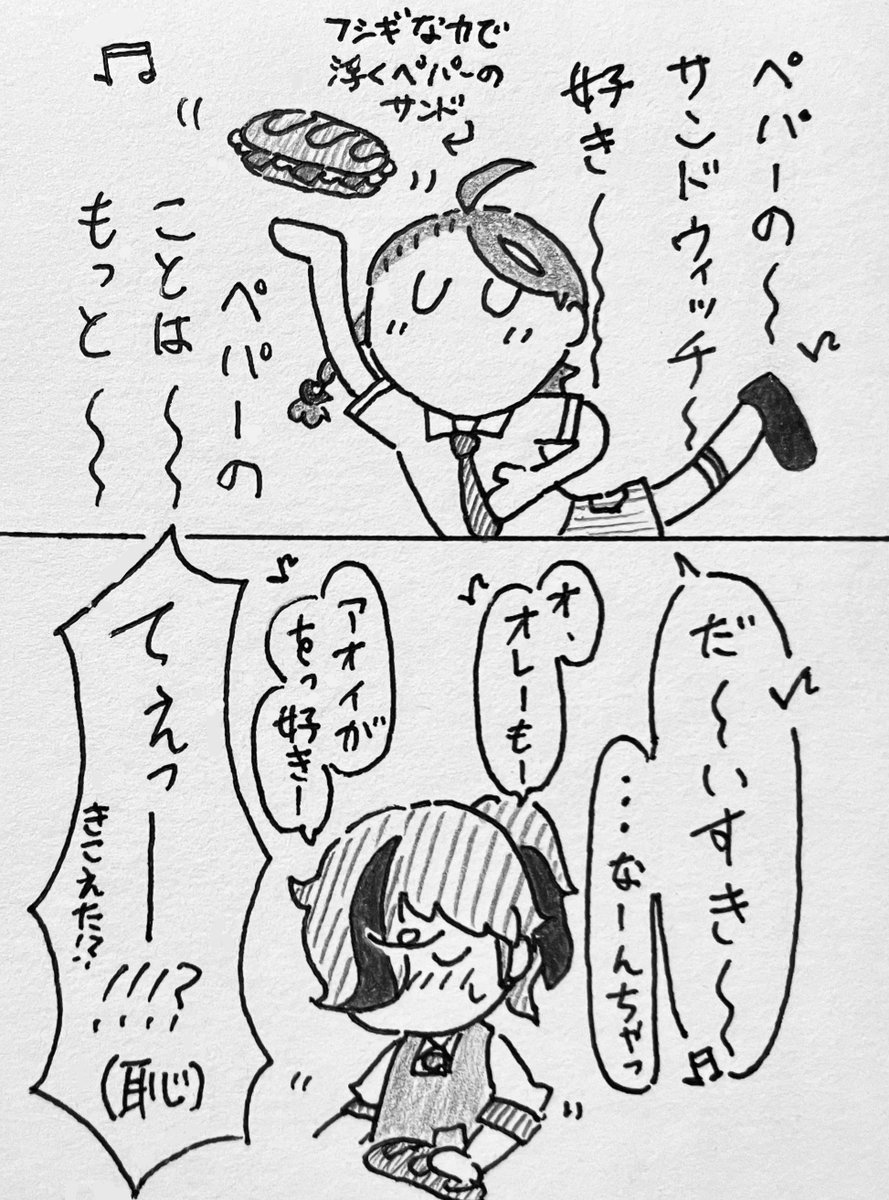 ペパーの〜
サンドウィッチ〜
好き〜〜
フシギな力で
浮くペパーの
サンド
ペパーの
ことは〜〜
もっと〜〜
だ〜いすき〜〜
・・・なーんちゃっ
オ、
オレーもー
アオイが
をっ好きー
てえっーー!!!?
きこえた!?
(恥)